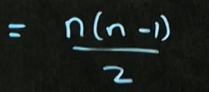 = n(n-1)/2